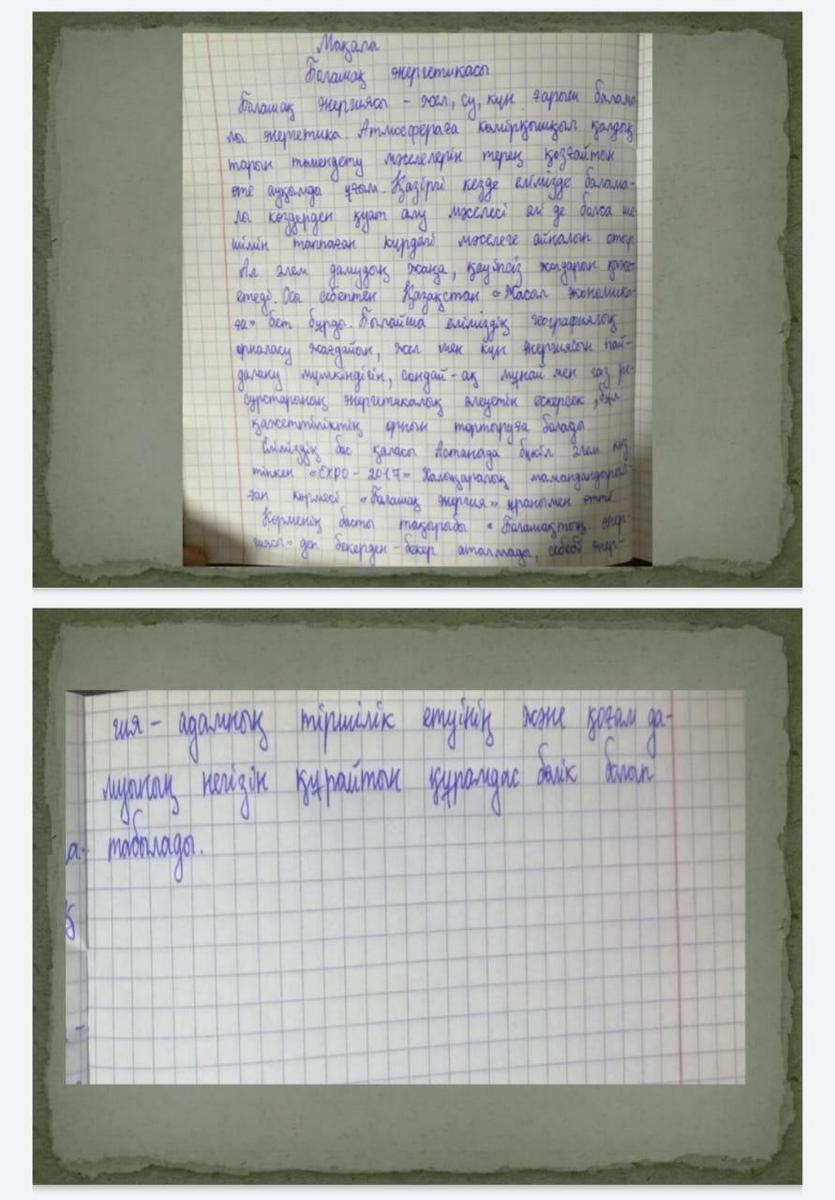 Мақала
Болашақ энергетикасы
Болашақ энергиясы – жел, су, күн тәрізді балама-
лы энергетика. Атмосфераға көмірқышқыл қалдық
тарын төмендету мәселелерін терең қозғайтын
өте ауқымды ұғым. Қазіргі кезде елімізде балама-
лы көздерден қуат алу мәселесі әлі де болса ше
шімін таппаған күрделі мәселеге айналып отыр
Ал әлем дамудың жаңа, қауіпсіз жолдарын қажет
етеді. Осы себептен Қазақстан «Жасыл экономика-
ға» бет бұрды. Былайша еліміздің географиялық
орналасу жағдайын, жел мен күн энергиясын пай-
далану мүмкіндігін, сондай-ақ мұнай мен газ ре-
сурстарының энергетикалық әлеуетін ескерсек, бұл
қажеттіліктің орнын толтыруға болады
Еліміздің бас қаласы Астанада бүкіл әлем көз
тіккен «EXPO – 2017» Халықаралық мамандандырыл-
ған көрмесі «Болашақ энергия» ұранымен өтті.
Көрменің басты тақырыбы «Болашақтың энер-
гиясы» деп бекерден-бекер аталмады, себебі энер-
гия – адамның тіршілік етуінің және қоғам да-
муының негізін құрайтын құрамдас бөлік болып
табылады.